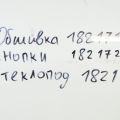 Обшивка 182171
нопки 182172
теклопод 1821